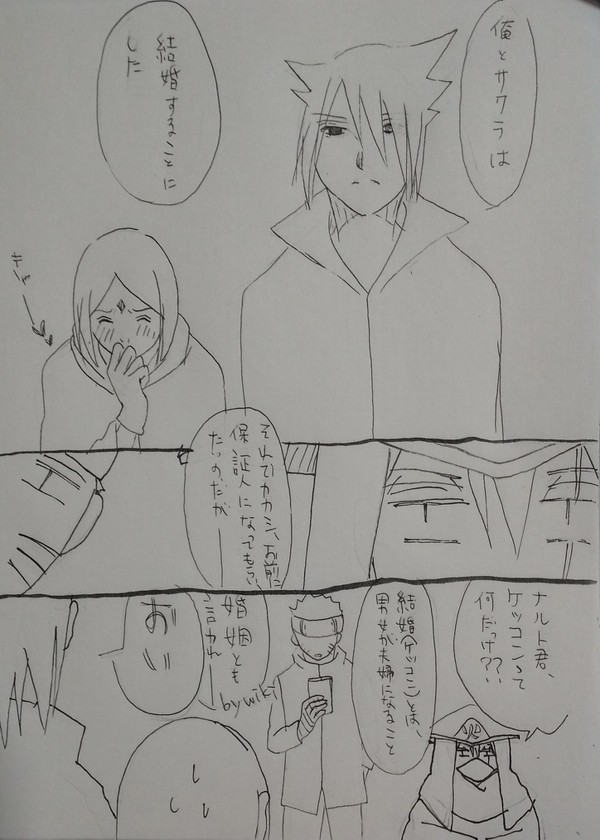 俺とサクラは
結婚することに
した
キャ
それでカカシ、お前に
保証人になってもらい
たいのだが
ナルト君、
ケッコンって
何だっけ??
結婚(ケッコン)とは、
男女が夫婦になること
婚姻とも
言われ
by wiki
おい